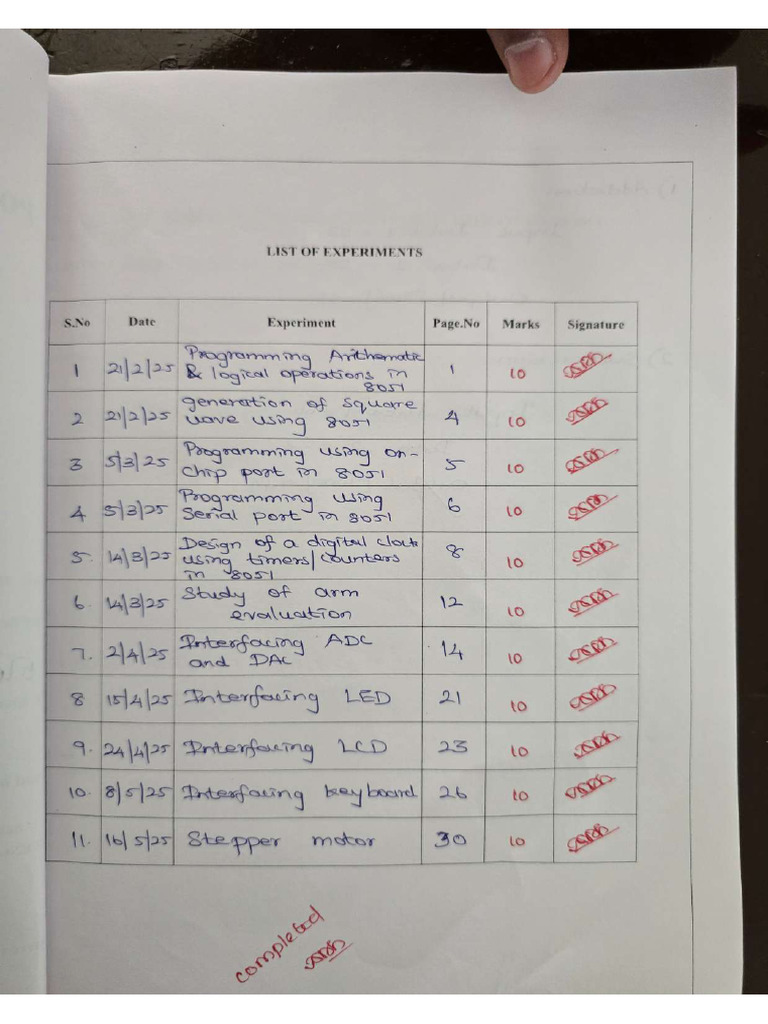 LIST OF EXPERIMENTS
S.No Date Experiment Page.No Marks Signature
1 21/2/25 Programming Arithematic & logical operations in 8051 1 10
2 21/2/25 generation of square wave using 8051 4 10
3 5/3/25 Programming using on-chip port in 8051 5 10
4 5/3/25 Programming using Serial port in 8051 6 10
5. 14/3/25 Design of a digital clock using timers/counters in 8051 8 10
6. 14/3/25 Study of arm evaluation 12 10
7. 2/4/25 Interfacing ADC and DAC 14 10
8 15/4/25 Interfacing LED 21 10
9. 24/4/25 Interfacing LCD 23 10
10. 8/5/25 Interfacing keyboard 26 10
11. 16/5/25 Stepper motor 30 10
completed